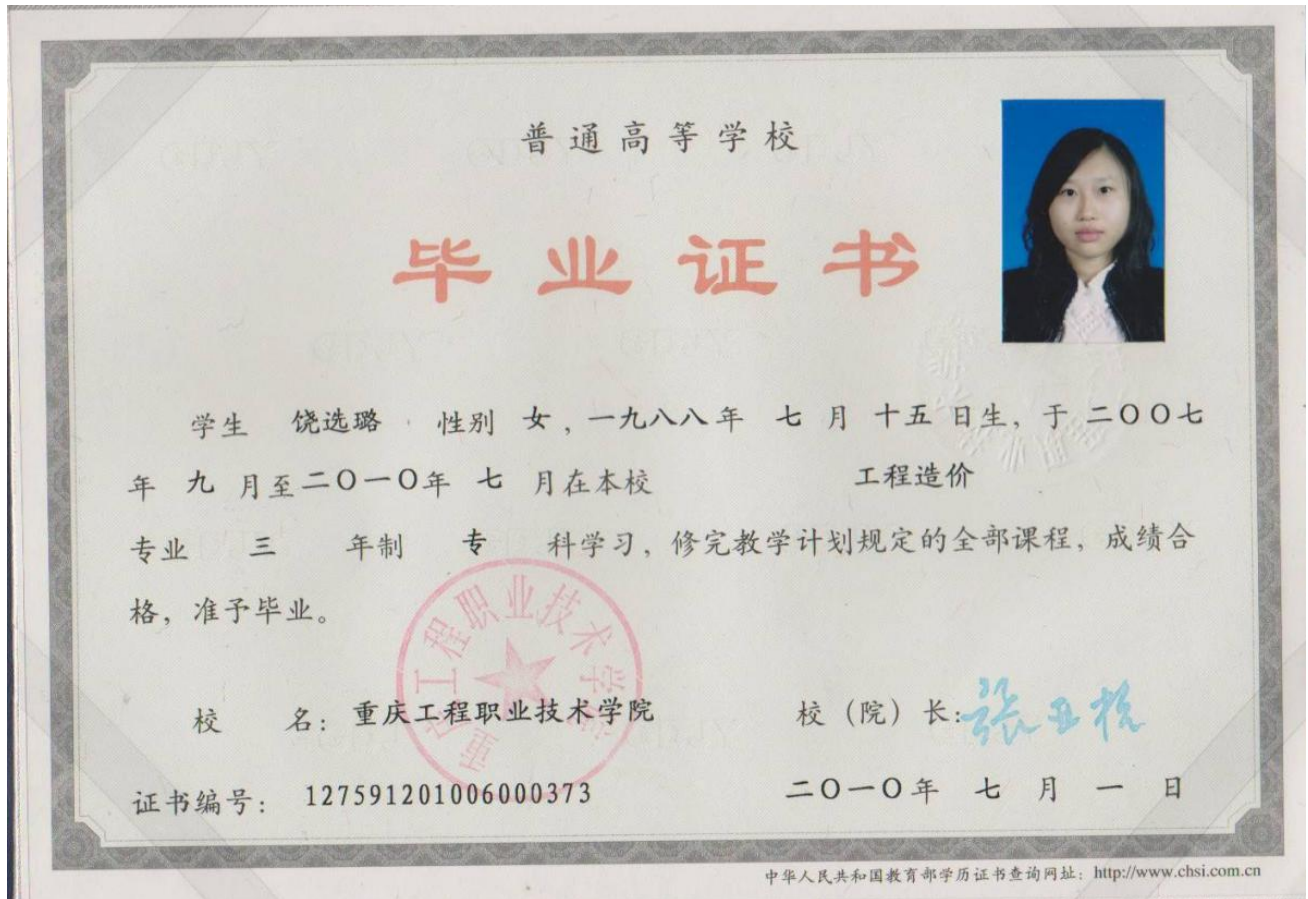 普通高等学校
毕业证书
学生 饶选璐 性别 女，一九八八年 七 月 十五 日生，于 二〇〇七
年 九 月至二〇一〇年 七 月在本校 工程造价
专业 三 年制 专 科学习，修完教学计划规定的全部课程，成绩合
格，准予毕业。
重庆工程职业技术学院
校 名：重庆工程职业技术学院 校（院）长：
证书编号： 127591201006000373 二〇一〇年 七 月 一 日
中华人民共和国教育部学历证书查询网址：http://www.chsi.com.cn